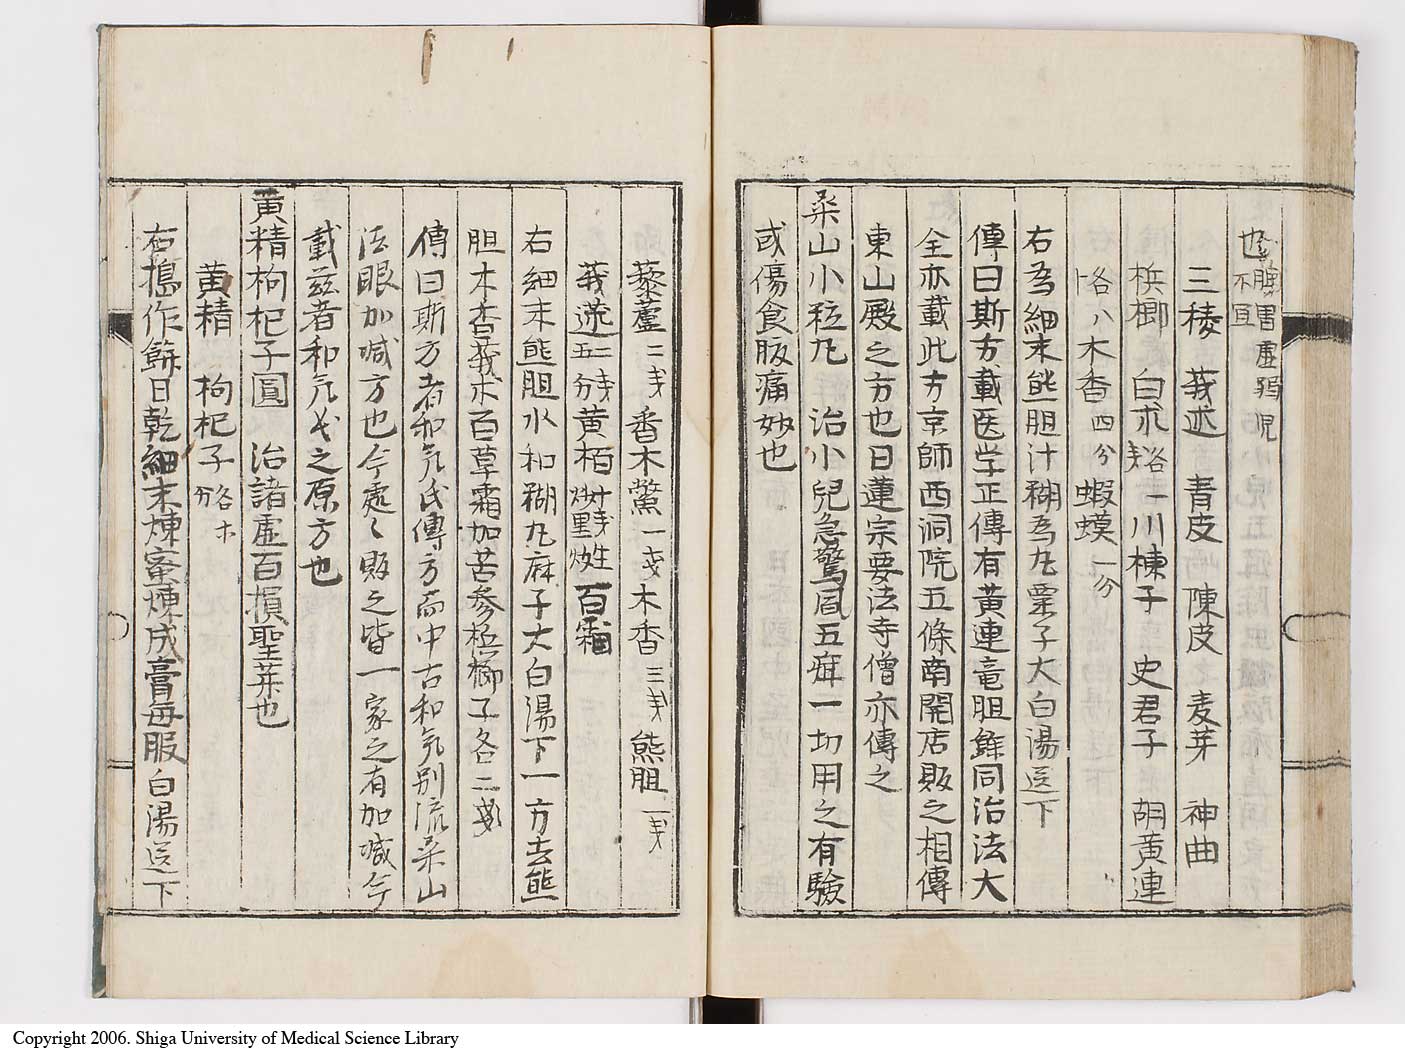 也 脾胃虚弱児
不宜
三稜 莪述 青皮 陳皮 麦芽 神曲
梹榔 白朮 各一戔 川楝子 史君子 胡黄連
各八 木香 四分 蝦蟆 一分
右為細末熊胆汁糊為丸粟子大白湯送下
傳曰斯方載医学正傳有黄連竜胆餘同治法大
全亦載此方京師西洞院五條南開店販之相傳
東山殿之方也日蓮宗要法寺僧亦傳之
桒山小粒丸 治小兒急驚風五疳一切用之有驗
或傷食腹痛妙也
藜蘆 二戔 香木鱉 一戔 木香 三戔 熊胆 一戔
莪述 二戔五分 黄栢 百霜
右細末熊胆水和糊丸麻子大白湯下一方去熊
胆木香莪朮百草霜加苦参梹榔子各二戔
傳曰斯方者和気氏傳方而中古和気別流桒山
法眼加减方也今處々販之皆一家之有加减今
載茲者和気氏之原方也
黄精枸杞子圓 治諸虚百損聖薬也
黄精 枸杞子 各等分
右搗作餅日乾細末煉蜜煉成膏毎服白湯送下
Copyright 2006. Shiga University of Medical Science Library